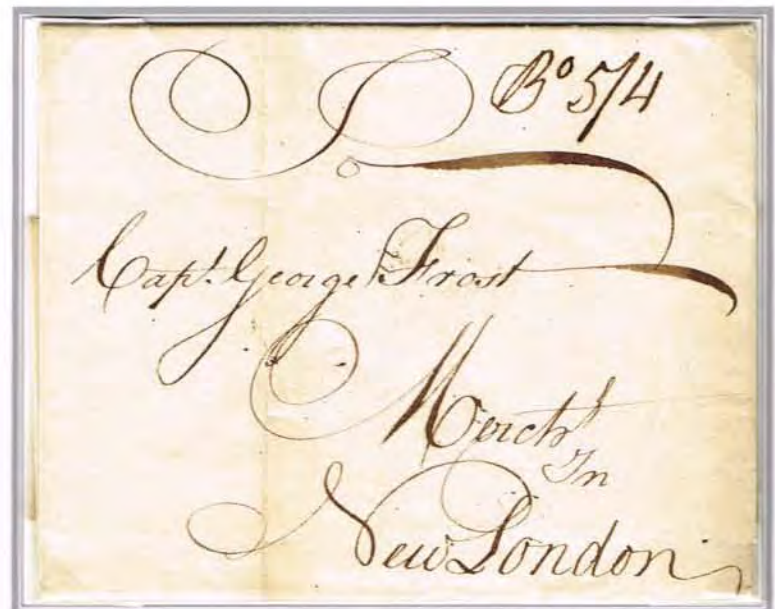 Bo 5/4
To
Capt. George Frost
Mercht
In
New London